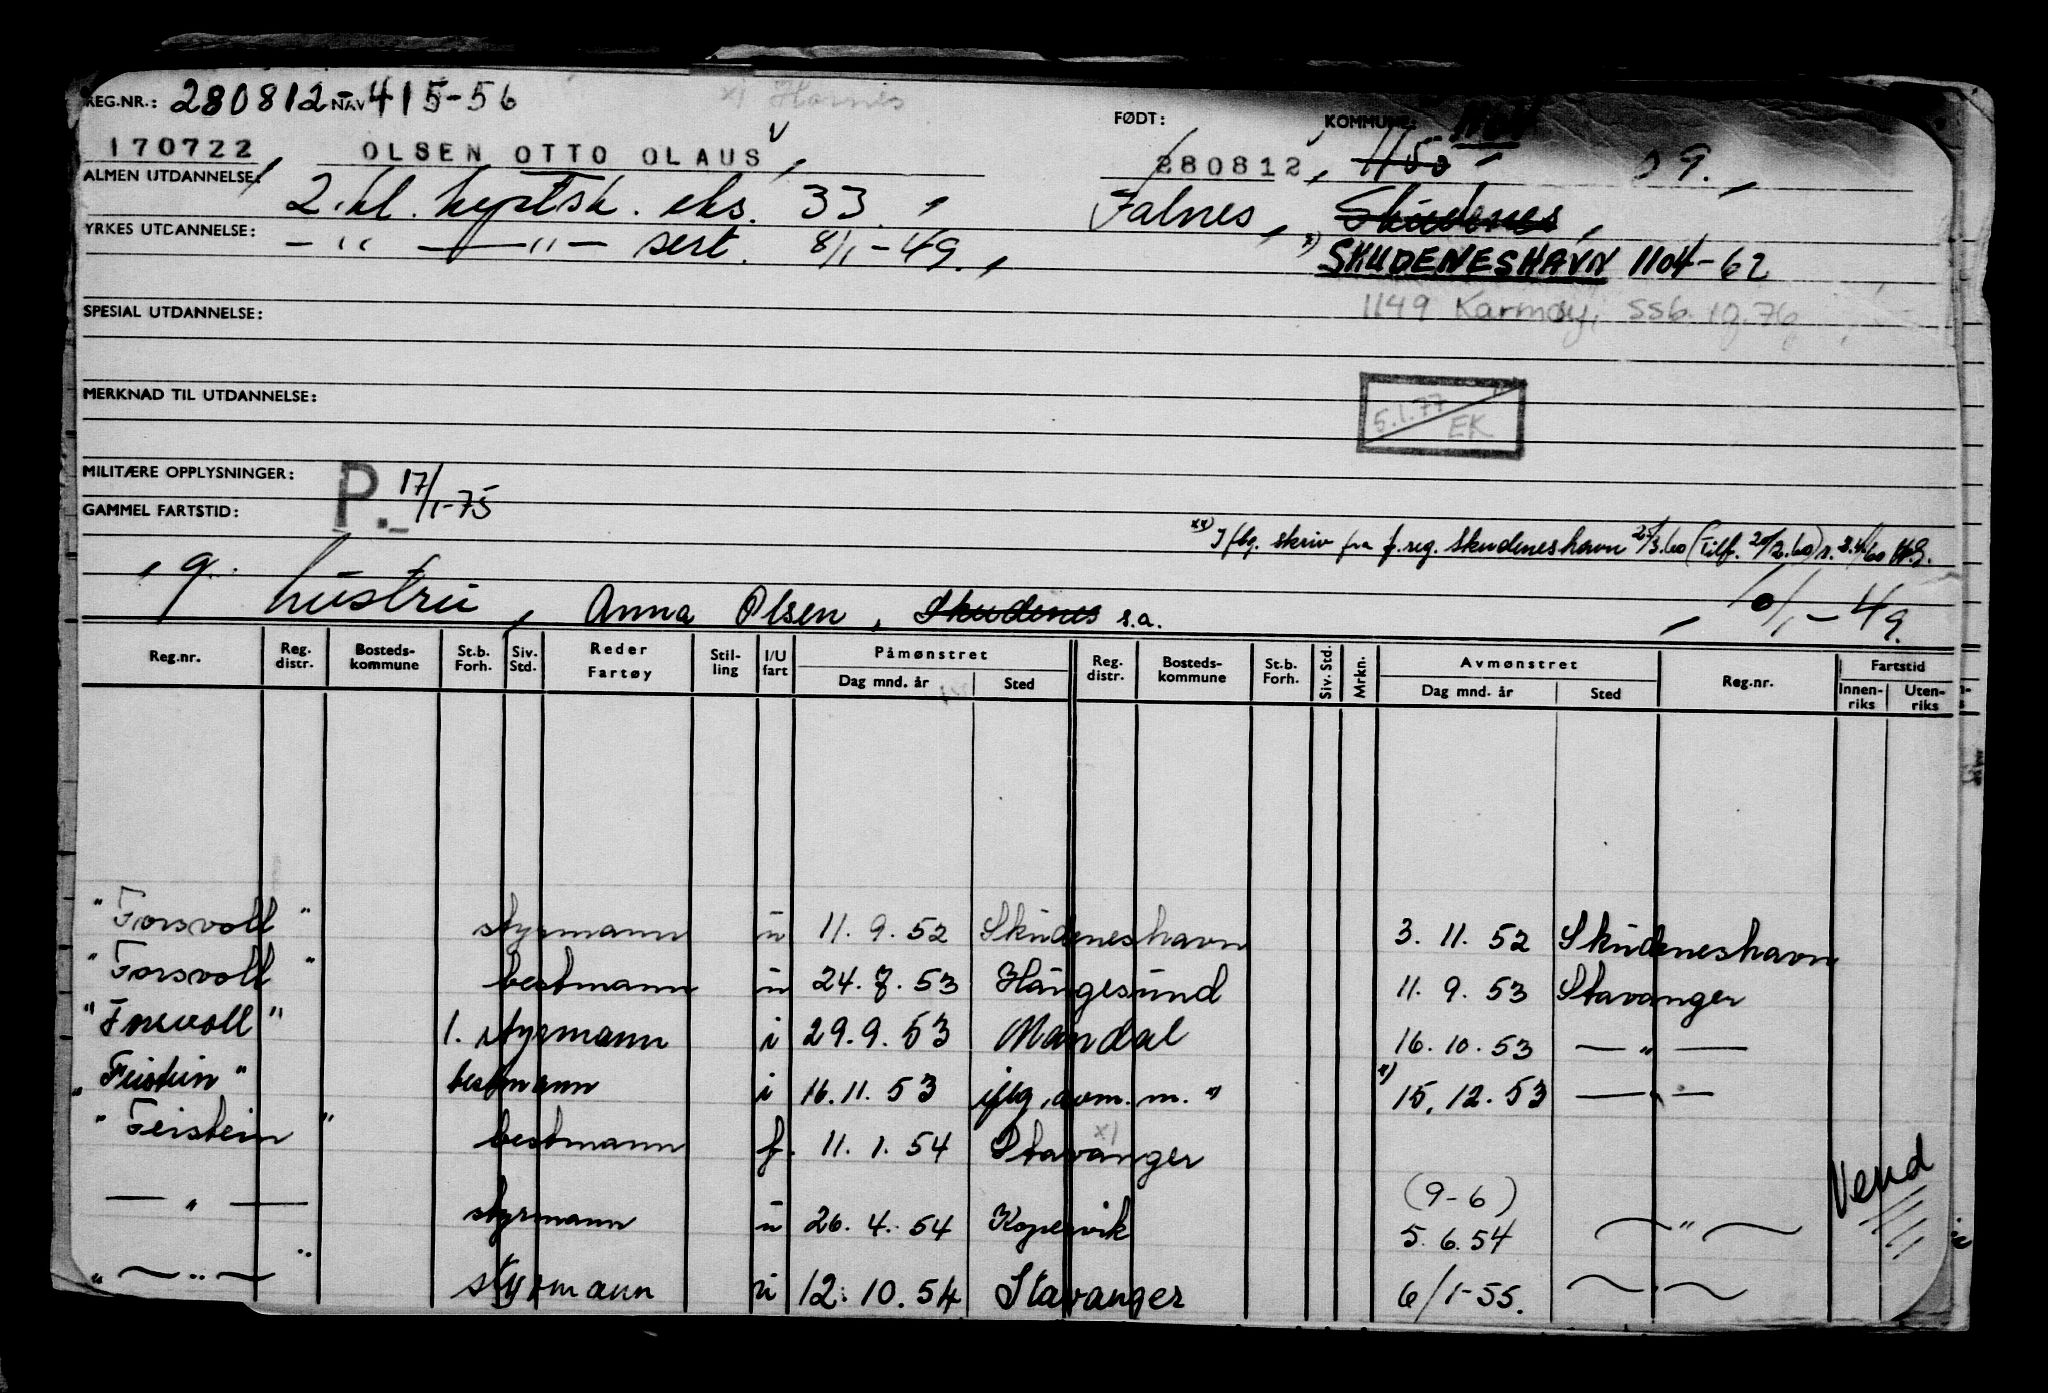 REG.NR.: 280812 NAV 415-56 x) Hornes
FØDT: KOMMUNE: 1104
170722, OLSEN OTTO OLAUS, 280812, 1150 09.,
ALMEN UTDANNELSE: 2. kl. kystsk. eks. 33, Falnes, Skudenes,
YRKES UTDANNELSE: — " — " — sert. 8/1-49., x) SKUDENESHAVN 1104-62
SPESIAL UTDANNELSE: 1149 Karmøy, SSB. 19.76
MERKNAD TIL UTDANNELSE:
5.1.77 EK
MILITÆRE OPPLYSNINGER:
P. 17/1-75
GAMMEL FARTSTID:
xx) Iflg. skriv fra f.reg. Skudeneshavn 25/3.60 (Tilf. 20/2.60)
, g. hustru, Anna Olsen, Skudenes s.a. , 10/1-49.
Reg.nr. Reg. distr. Bosteds-kommune St.b. Forh. Siv. Std. Reder Fartøy Stil-ling I/U fart Påmønstret Dag mnd. år Sted Reg. distr. Bosteds-kommune St.b. Forh. Siv. Std. Mrkn. Avmønstret Dag mnd. år Sted Reg.nr. Fartstid Innen-riks Uten-riks
"Forsvoll" styrmann u 11. 9. 52 Skudeneshavn 3. 11. 52 Skudeneshavn
"Forsvoll" bestmann u 24. 7. 53 Haugesund 11. 9. 53 Stavanger
"Forsvoll" 1. styrmann i 29. 9. 53 Mandal 16. 10. 53 — " —
"Feistein" bestmann i 16. 11. 53 iflg. avm. m. x) x) 15. 12. 53 — " —
"Feistein" bestmann f. 11. 1. 54 Stavanger x)
— " — styrmann u 26. 4. 54 Kopervik (9-6) 5. 6. 54 — " —
" — " — " styrmann u 12. 10. 54 Stavanger 6/1-55. — " —
Vend